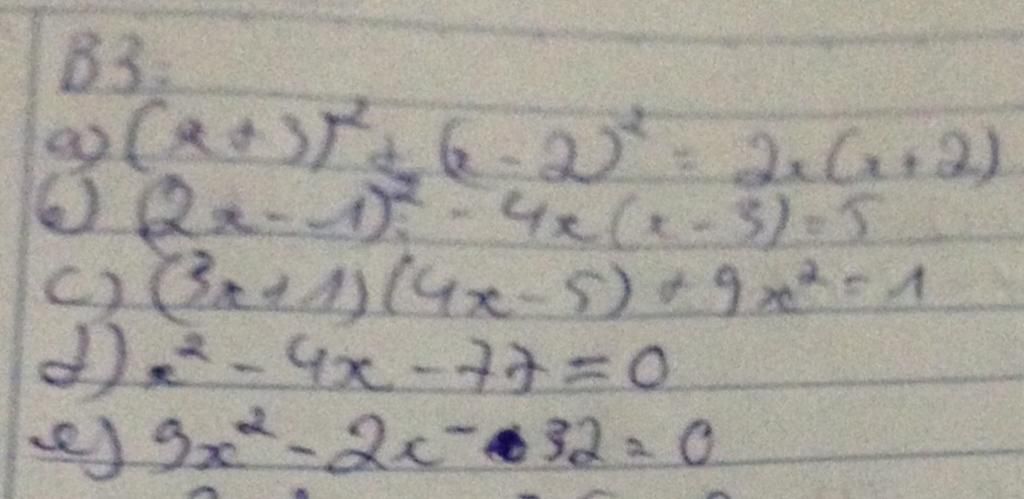 B3:
a) (x + 3)² + (x - 2)² = 2x(x + 2)
b) (2x - 1)² - 4x(x - 3) = 5
c) (3x + 1)(4x - 5) + 9x² = 1
d) x² - 4x - 77 = 0
e) 9x² - 2x - 32 = 0